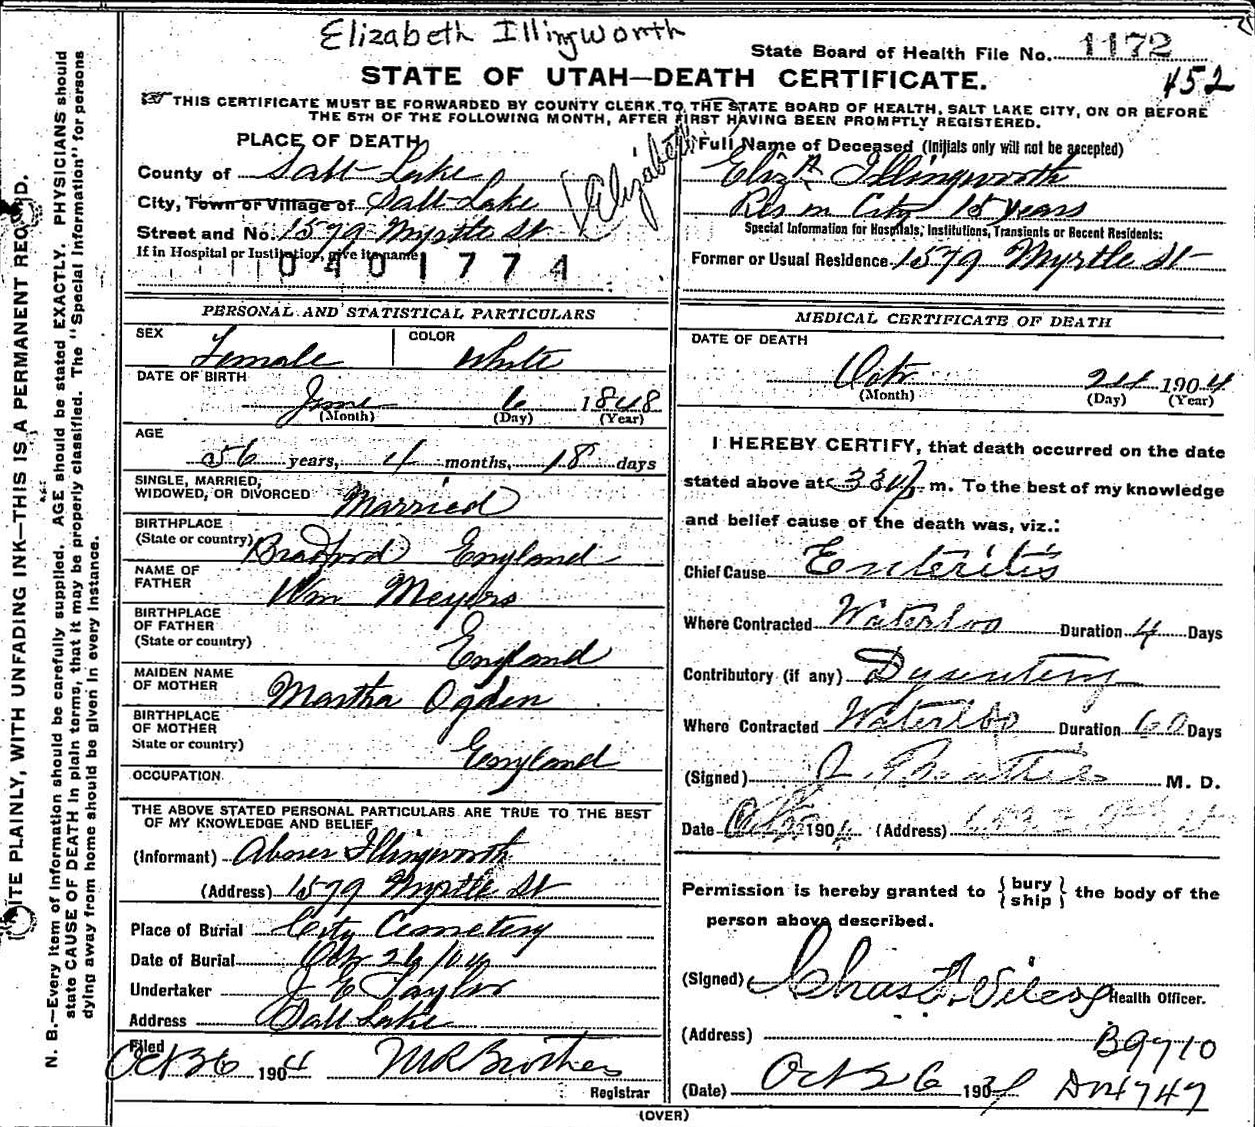 Elizabeth Illingworth
State Board of Health File No. 1172
452
STATE OF UTAH—DEATH CERTIFICATE.
THIS CERTIFICATE MUST BE FORWARDED BY COUNTY CLERK TO THE STATE BOARD OF HEALTH, SALT LAKE CITY, ON OR BEFORE
THE 5TH OF THE FOLLOWING MONTH, AFTER FIRST HAVING BEEN PROMPTLY REGISTERED.
PLACE OF DEATH
County of Salt Lake
City, Town or Village of Salt Lake
Street and No. 1579 Myrtle St
If in Hospital or Institution, give its name
0401774
Elizabeth
Full Name of Deceased (Initials only will not be accepted)
Eliz A Illingworth
Res in City 15 years
Special Information for Hospitals, Institutions, Transients or Recent Residents:
Former or Usual Residence 1579 Myrtle St
PERSONAL AND STATISTICAL PARTICULARS
SEX Female
COLOR White
DATE OF BIRTH
June 6 1848
(Month) (Day) (Year)
AGE
56 years, 4 months, 18 days
SINGLE, MARRIED,
WIDOWED, OR DIVORCED Married
BIRTHPLACE
(State or country) Bradford England
NAME OF
FATHER Wm Meyers
BIRTHPLACE
OF FATHER
(State or country) England
MAIDEN NAME
OF MOTHER Martha Ogden
BIRTHPLACE
OF MOTHER
State or country) England
OCCUPATION
THE ABOVE STATED PERSONAL PARTICULARS ARE TRUE TO THE BEST
OF MY KNOWLEDGE AND BELIEF
(Informant) Abner Illingworth
(Address) 1579 Myrtle St
Place of Burial City Cemetery
Date of Burial Oct 26/04
Undertaker J E Taylor
Address Salt Lake
Filed
Oct 26 1904
Registrar
MEDICAL CERTIFICATE OF DEATH
DATE OF DEATH
Octr 24 1904
(Month) (Day) (Year)
I HEREBY CERTIFY, that death occurred on the date
stated above at m. To the best of my knowledge
and belief cause of the death was, viz.:
Chief Cause Enteritis
Where Contracted Waterloo Duration 4 Days
Contributory (if any) Dysentery
Where Contracted Waterloo Duration 60 Days
(Signed) M. D.
Date 1904 (Address)
Permission is hereby granted to { bury ship } the body of the
person above described.
(Signed) Chas F. Wilcox Health Officer.
(Address)
B9710
(Date) Oct 26 190
D14747
(OVER)
ITE PLAINLY, WITH UNFADING INK—THIS IS A PERMANENT RECORD.
N. B.—Every item of information should be carefully supplied. AGE should be stated EXACTLY. PHYSICIANS should
state CAUSE OF DEATH in plain terms, that it may be properly classified. The "Special Information" for persons
dying away from home should be given in every instance.